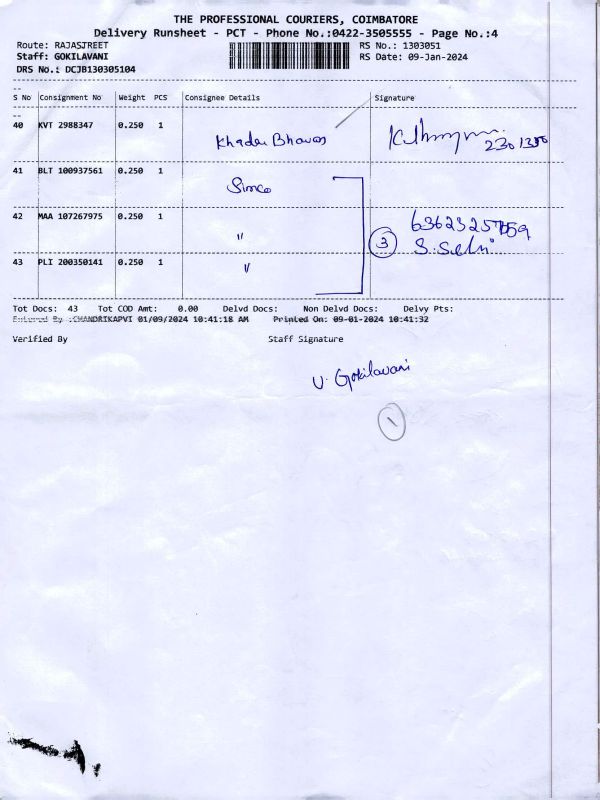 THE PROFESSIONAL COURIERS, COIMBATORE
Delivery Runsheet - PCT - Phone No.:0422-3505555 - Page No.:4
Route: RAJASTREET RS No.: 1303051
Staff: GOKILAVANI RS Date: 09-Jan-2024
DRS No.: DCJB130305104
S No Consignment No Weight PCS Consignee Details Signature
40 KVT 2988347 0.250 1 Khader Bhavan
2301350
41 BLT 100937561 0.250 1 Simco
42 MAA 107267975 0.250 1 "
3 S. Selvi
43 PLI 200350141 0.250 1 "
Tot Docs: 43 Tot COD Amt: 0.00 Delvd Docs: Non Delvd Docs: Delvy Pts:
Entered By :CHANDRIKAPVI 01/09/2024 10:41:18 AM Printed On: 09-01-2024 10:41:32
Verified By Staff Signature
V. Gokilavani
1